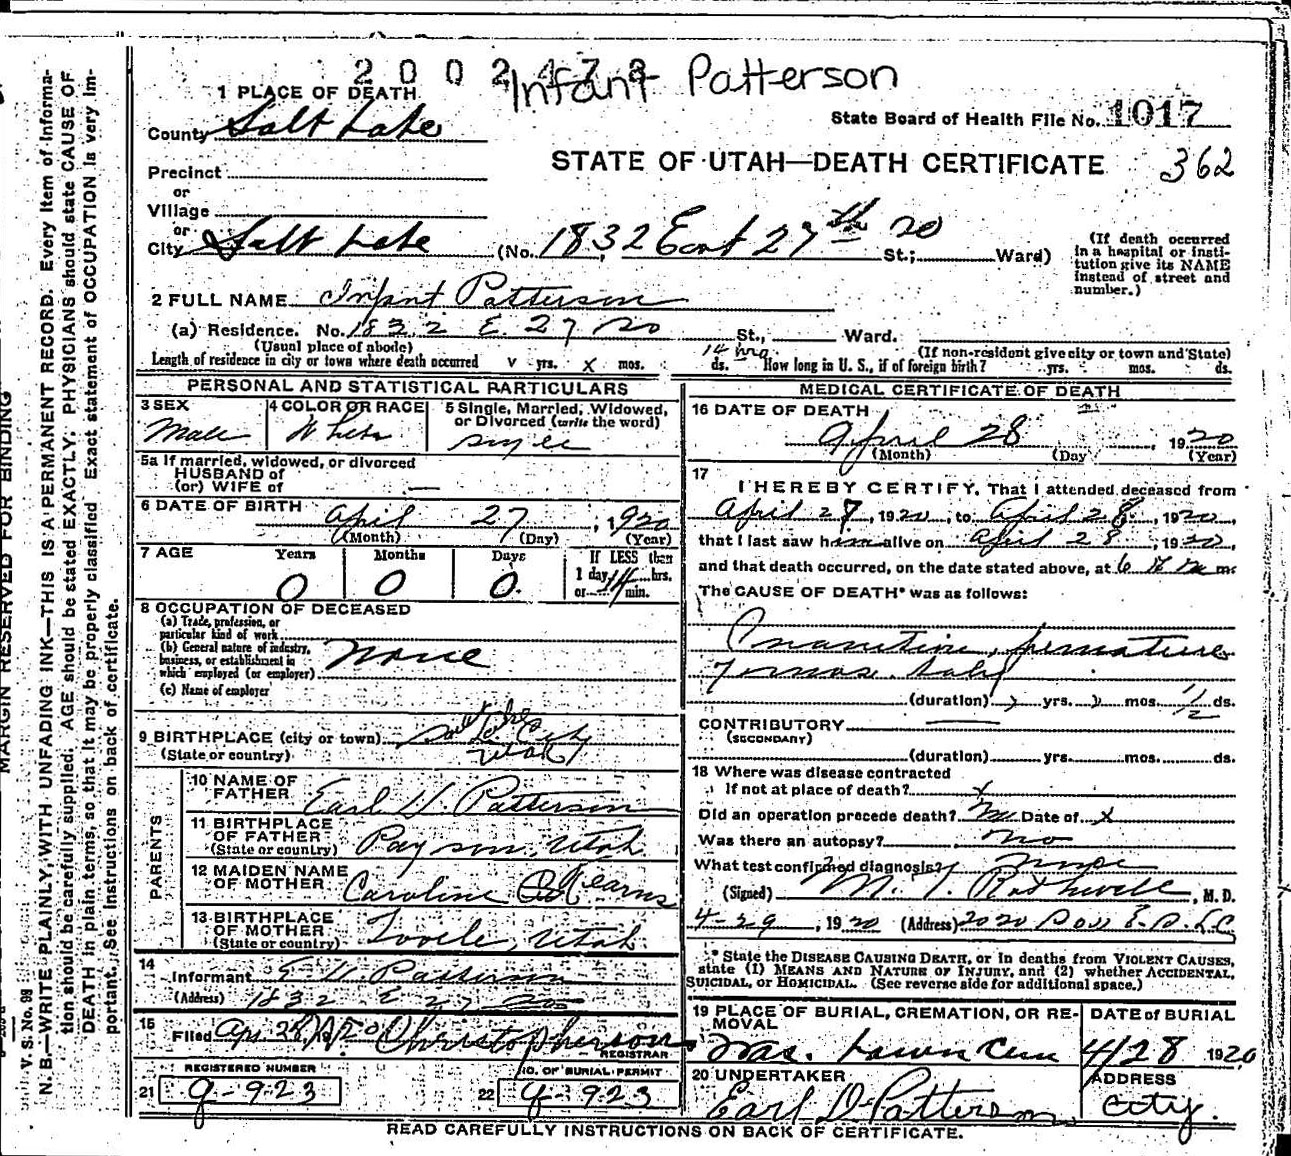 2002478 Infant Patterson
1 PLACE OF DEATH
County Salt Lake
State Board of Health File No. 1017
STATE OF UTAH—DEATH CERTIFICATE 362
Precinct
or
Village
or
City Salt Lake (No. 1832 East 27th So St.; Ward)
(If death occurred in a hospital or insti-
tution give its NAME
instead of street and
number.)
2 FULL NAME Infant Patterson
(a) Residence. No. 1832 E. 27 So St., Ward.
(Usual place of abode) (If non-resident give city or town and State)
Length of residence in city or town where death occurred yrs. x mos. 14 hrs ds. How long in U. S., if of foreign birth? yrs. mos. ds.
PERSONAL AND STATISTICAL PARTICULARS
3 SEX Male
4 COLOR OR RACE White
5 Single, Married, Widowed,
or Divorced (write the word)
single
5a If married, widowed, or divorced
HUSBAND of
(or) WIFE of —
6 DATE OF BIRTH April 27, 1920
(Month) (Day) (Year)
7 AGE Years Months Days If LESS than
1 day 14 hrs.
or min.
0 0 0
8 OCCUPATION OF DECEASED
(a) Trade, profession, or
particular kind of work
(b) General nature of industry,
business, or establishment in
which employed (or employer) None
(c) Name of employer
9 BIRTHPLACE (city or town) Salt Lake City
(State or country) Utah
PARENTS
10 NAME OF
FATHER Earl D. Patterson
11 BIRTHPLACE
OF FATHER
(State or country) Payson, Utah
12 MAIDEN NAME
OF MOTHER Caroline Kearns
13 BIRTHPLACE
OF MOTHER
(State or country) Tooele, Utah
14
Informant E D Patterson
(Address) 1832 E 27 So
15
Filed Apr 28, 1920 Christopherson
REGISTRAR
REGISTERED NUMBER
21 9-923
NO. OF BURIAL PERMIT
22 9-923
MEDICAL CERTIFICATE OF DEATH
16 DATE OF DEATH
April 28, 1920
(Month) (Day) (Year)
17
I HEREBY CERTIFY, That I attended deceased from
April 27, 1920, to April 28, 1920,
that I last saw him alive on April 28, 1920,
and that death occurred, on the date stated above, at 6 m.
The CAUSE OF DEATH* was as follows:
Inanition, premature
(duration) yrs. mos. 1/2 ds.
CONTRIBUTORY —
(SECONDARY)
(duration) yrs. mos. ds.
18 Where was disease contracted
If not at place of death? x
Did an operation precede death? no Date of x
Was there an autopsy? no
What test confirmed diagnosis?
(Signed) Rothwell, M. D.
4-29, 1920 (Address) 2020
* State the DISEASE CAUSING DEATH, or in deaths from VIOLENT CAUSES,
state (1) MEANS AND NATURE OF INJURY, and (2) whether ACCIDENTAL,
SUICIDAL, or HOMICIDAL. (See reverse side for additional space.)
19 PLACE OF BURIAL, CREMATION, OR RE-
MOVAL
Was. Lawn Cem
DATE of BURIAL
4/28 1920
20 UNDERTAKER
Earl D Patterson
ADDRESS
City.
READ CAREFULLY INSTRUCTIONS ON BACK OF CERTIFICATE.
MARGIN RESERVED FOR BINDING
V. S. No. 99
N. B.—WRITE PLAINLY, WITH UNFADING INK—THIS IS A PERMANENT RECORD. Every item of informa-
tion should be carefully supplied. AGE should be stated EXACTLY. PHYSICIANS should state CAUSE OF
DEATH in plain terms, so that it may be properly classified. Exact statement of OCCUPATION is very im-
portant. See instructions on back of certificate.